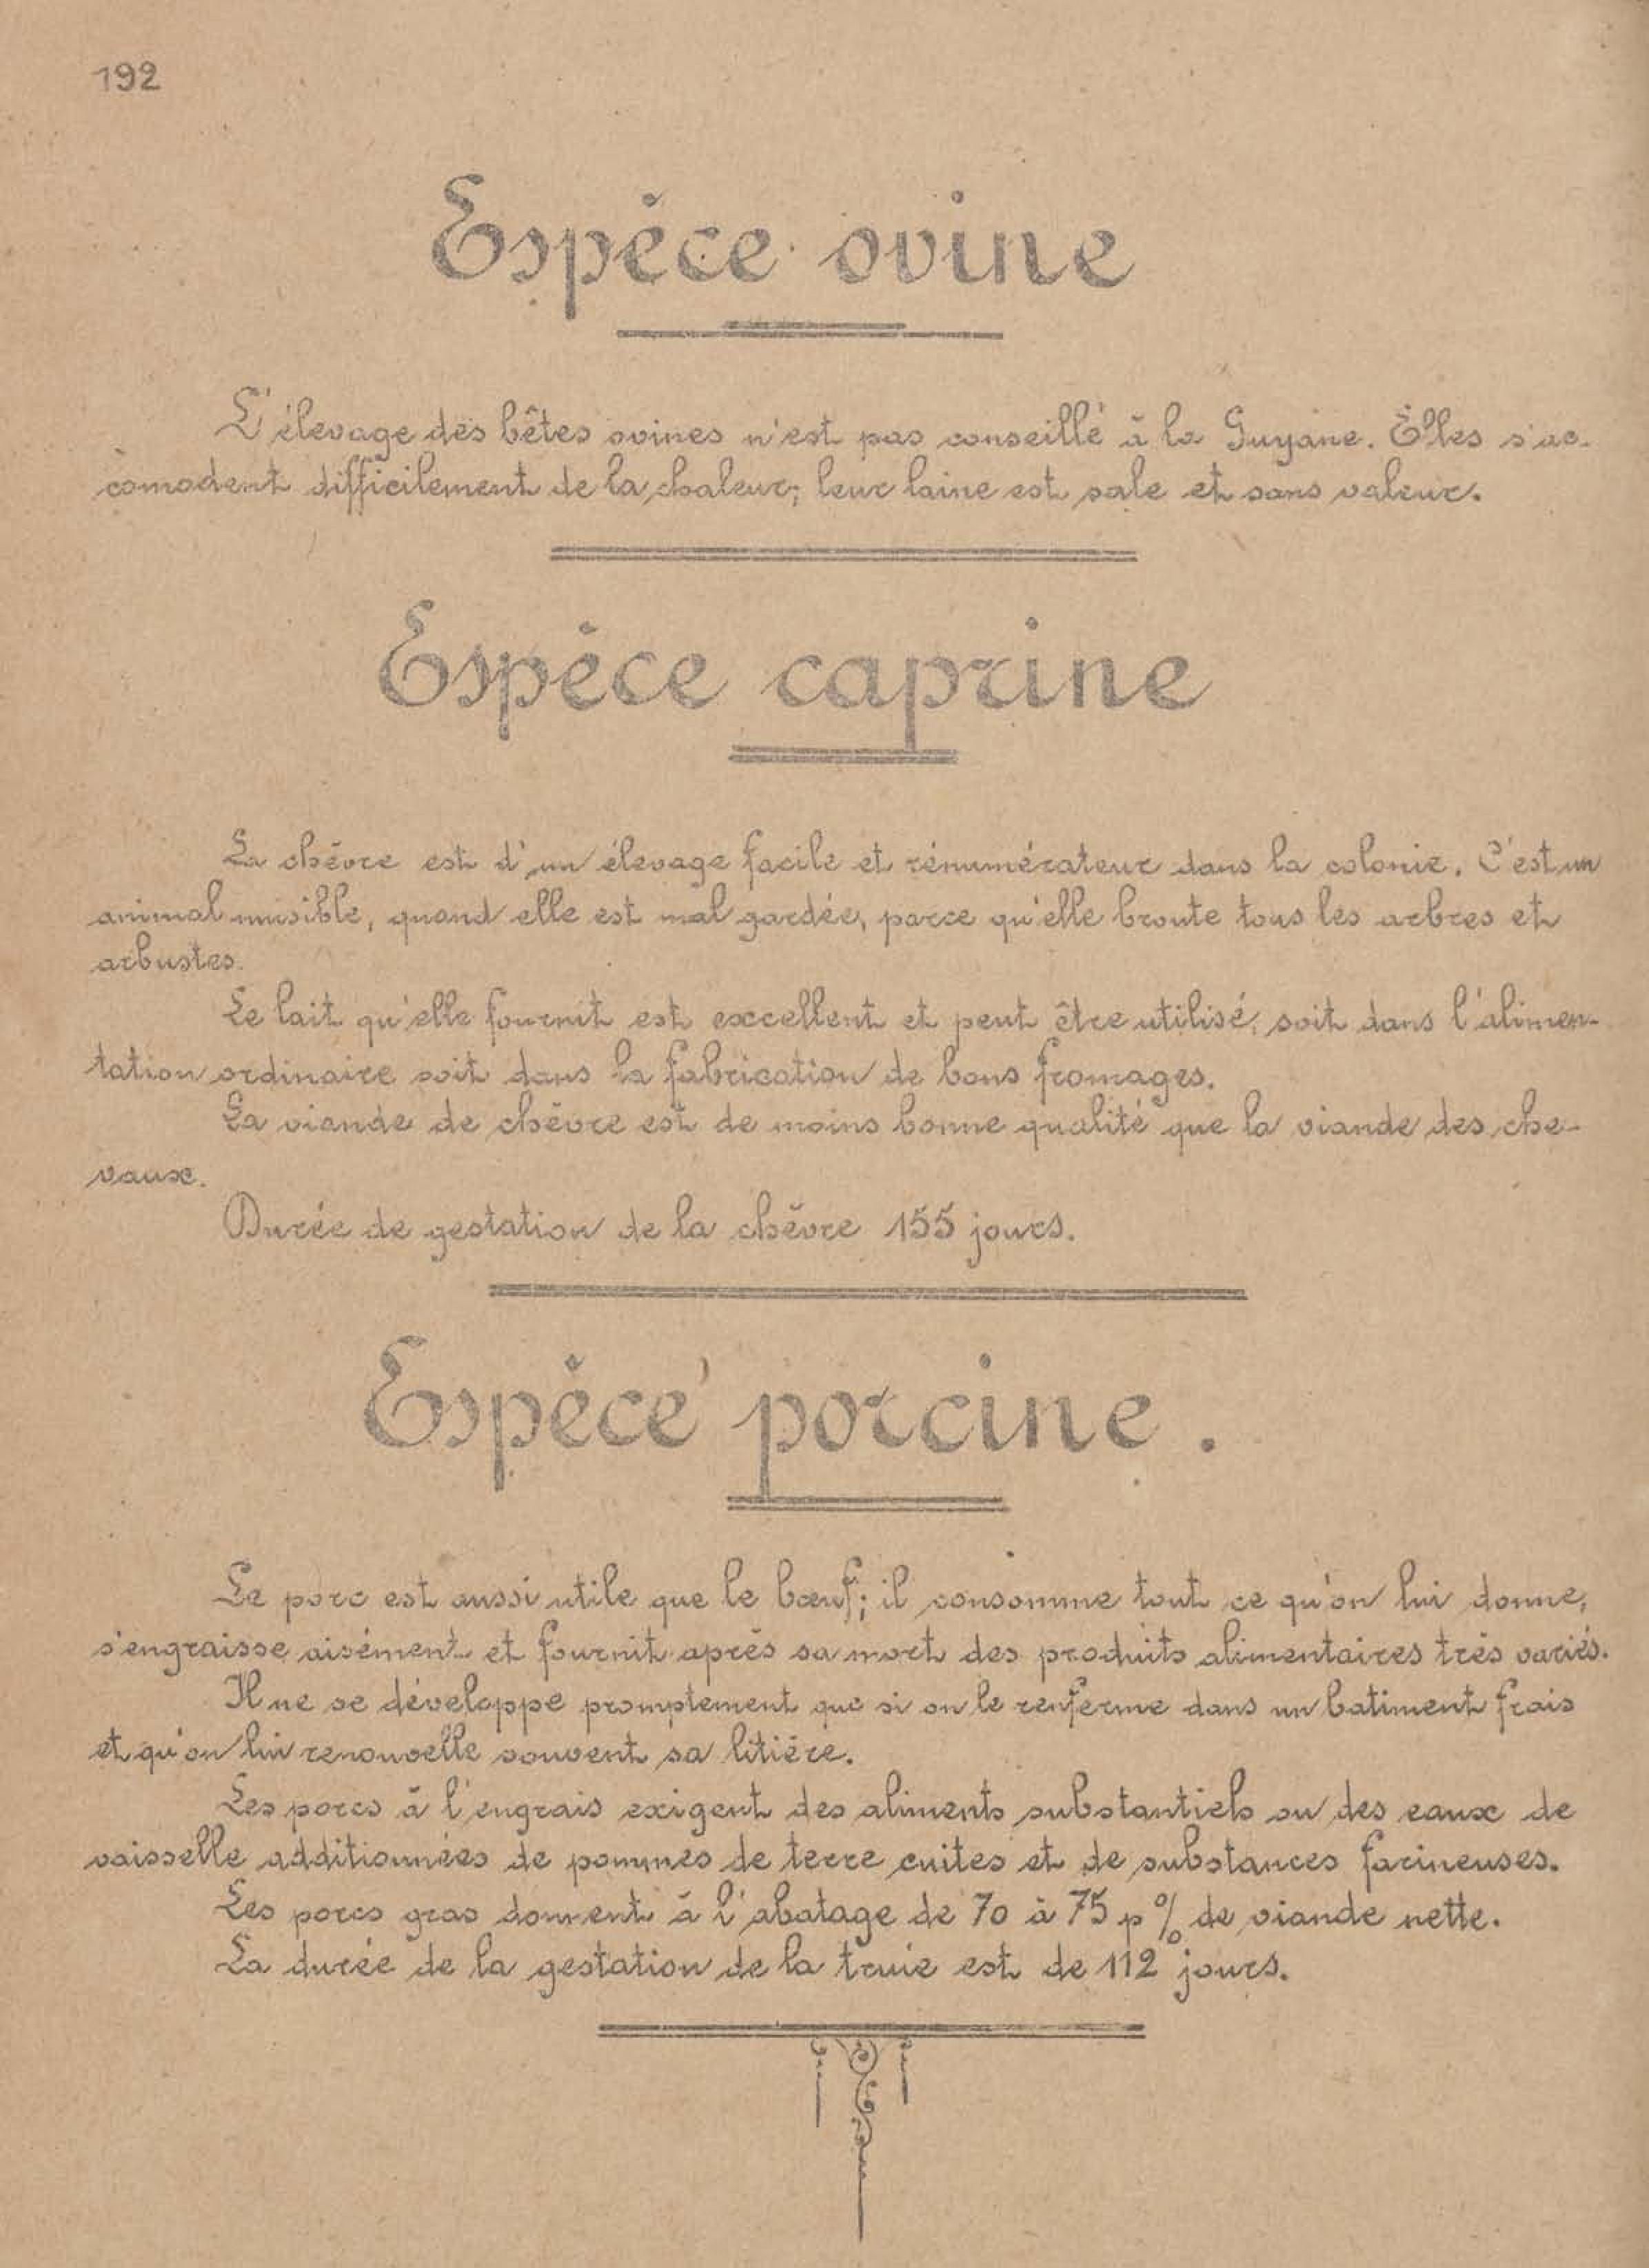 192
Espèce ovine
L'élevage des bêtes ovines n'est pas conseillé à la Guyane. Elles s'ac-
comodent difficilement de la chaleur; leur laine est sale et sans valeur.
Espèce caprine
La chèvre est d'un élevage facile et rénumérateur dans la colonie. C'est un
animal nuisible, quand elle est mal gardée, parce qu'elle broute tous les arbres et
arbustes.
Le lait qu'elle fournit est excellent et peut être utilisé, soit dans l'alimen-
tation ordinaire soit dans la fabrication de bons fromages.
La viande de chèvre est de moins bonne qualité que la viande des che-
vaux.
Durée de gestation de la chèvre 155 jours.
Espèce porcine.
Le porc est aussi utile que le bœuf; il consomme tout ce qu'on lui donne,
s'engraisse aisément et fournit après sa mort des produits alimentaires très variés.
Il ne se développe promptement que si on le renferme dans un batiment frais
et qu'on lui renouvelle souvent sa litière.
Les porcs à l'engrais exigent des aliments substantiels ou des eaux de
vaisselle additionnées de pommes de terre cuites et de substances farineuses.
Les porcs gras donnent à l'abatage de 70 à 75 p % de viande nette.
La durée de la gestation de la truie est de 112 jours.